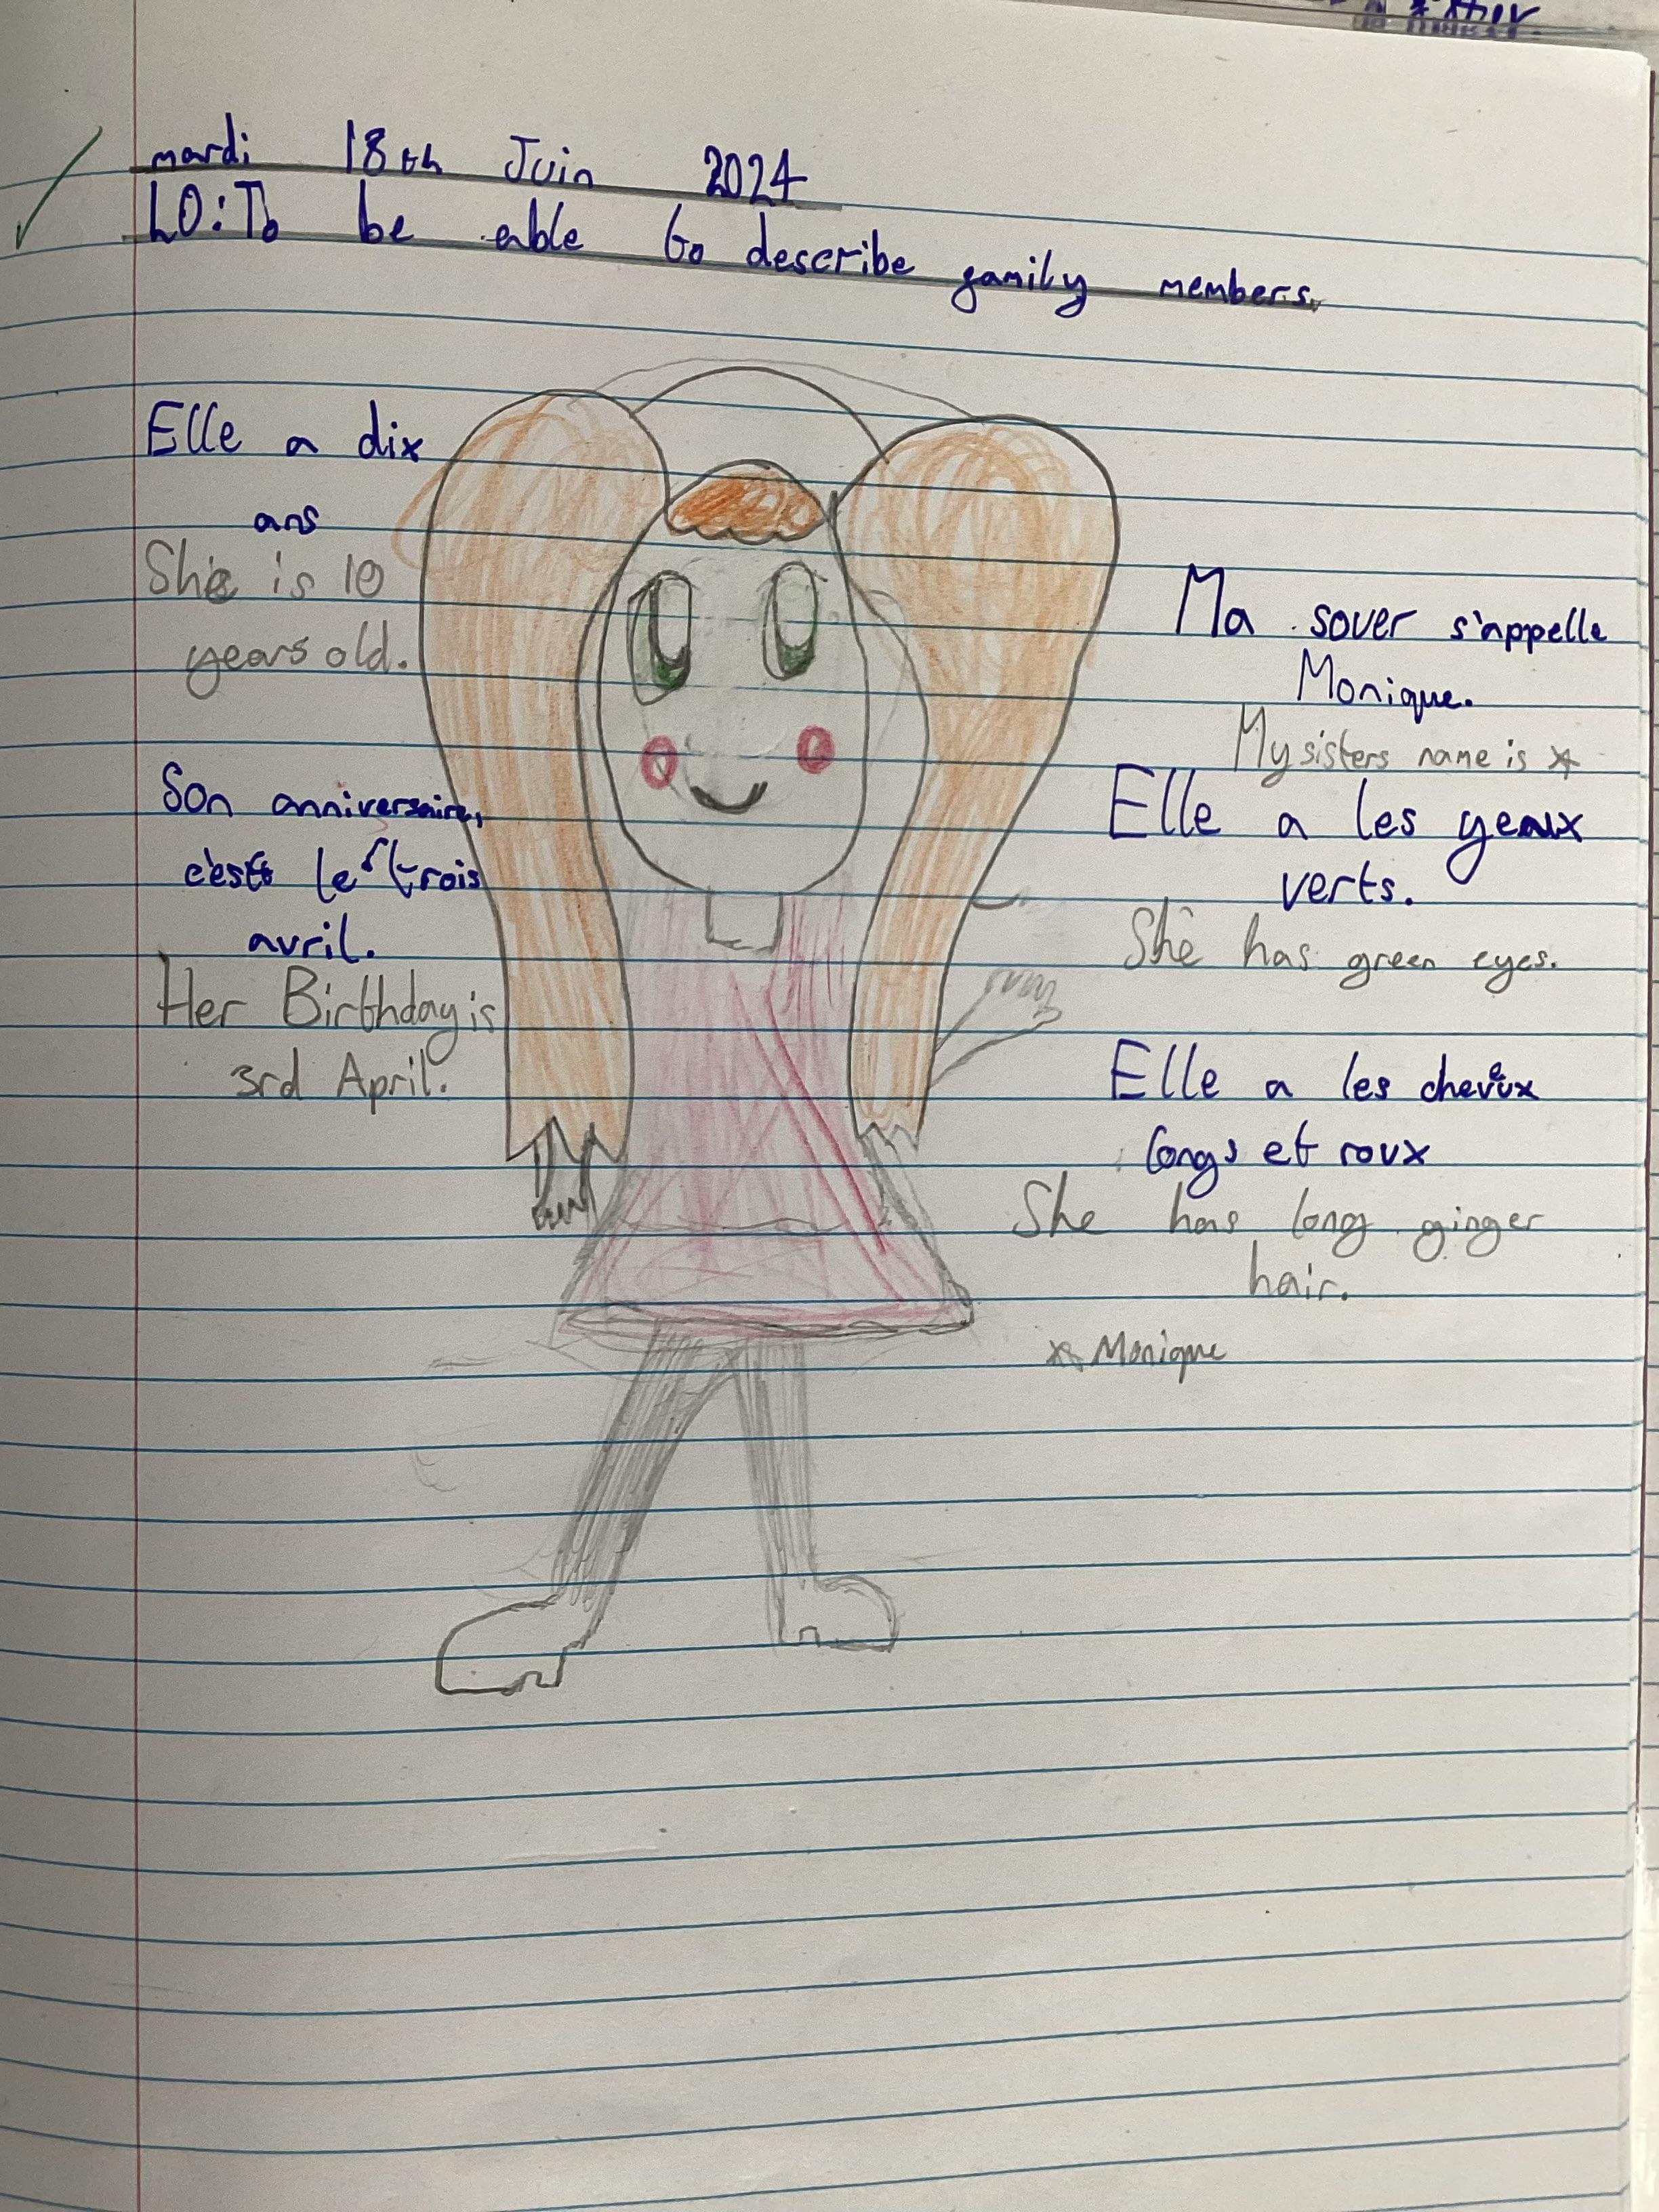 mardi 18th Juin 2024
LO: To be able to describe family members.
Elle a dix
ans
She is 10
years old.
Son anniversaire,
c'est le trois
avril.
Her Birthday is
3rd April.
Ma sover s'appelle
Monique.
My sisters name is *
Elle a les yeaux
verts.
She has green eyes.
Elle a les cheveux
longs et roux
She has long ginger
hair.
* Monique